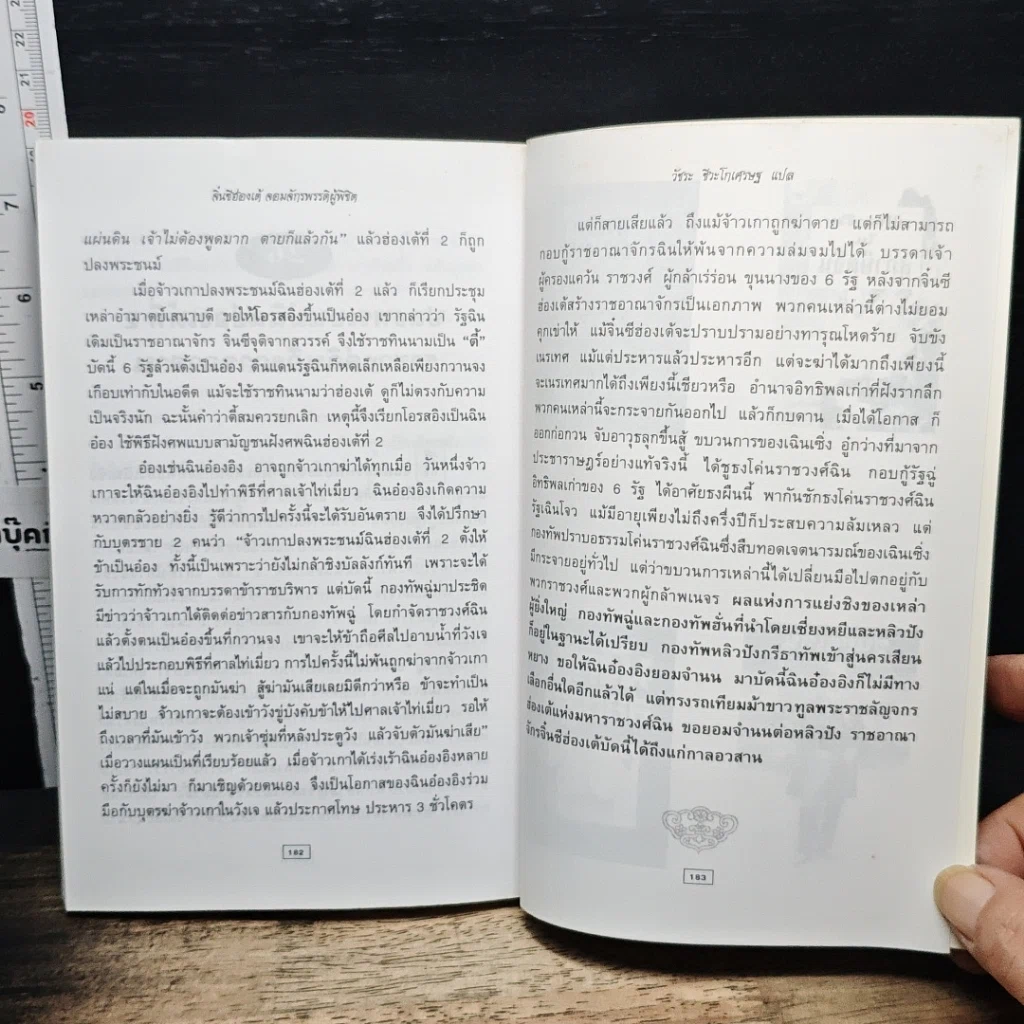 จิ๋นซีฮ่องเต้ จอมจักรพรรดิผู้พิชิต
แผ่นดิน เจ้าไม่ต้องพูดมาก ตายก็แล้วกัน" แล้วฮ่องเต้ที่ 2 ก็ถูก
ปลงพระชนม์
เมื่อจ้าวเกาปลงพระชนม์ฉินฮ่องเต้ที่ 2 แล้ว ก็เรียกประชุม
เหล่าอำมาตย์เสนาบดี ขอให้โอรสอิงขึ้นเป็นอ๋อง เขากล่าวว่า รัฐฉิน
เดิมเป็นราชอาณาจักร จิ๋นซีจุติจากสวรรค์ จึงใช้ราชทินนามเป็น "ตี้"
บัดนี้ 6 รัฐล้วนตั้งเป็นอ๋อง ดินแดนรัฐฉินก็หดเล็กเหลือเพียงกวานจง
เกือบเท่ากับในอดีต แม้จะใช้ราชทินนามว่าฮ่องเต้ ดูก็ไม่ตรงกับความ
เป็นจริงนัก ฉะนั้นคำว่าตี้สมควรยกเลิก เหตุนี้จึงเรียกโอรสอิงเป็นฉิน
อ๋อง ใช้พิธีฝังศพแบบสามัญชนฝังศพฉินฮ่องเต้ที่ 2
อ๋องเช่นฉินอ๋องอิง อาจถูกจ้าวเกาฆ่าได้ทุกเมื่อ วันหนึ่งจ้าว
เกาจะให้ฉินอ๋องอิงไปทำพิธีที่ศาลเจ้าไท่เมี่ยว ฉินอ๋องอิงเกิดความ
หวาดกลัวอย่างยิ่ง รู้ดีว่าการไปครั้งนี้จะได้รับอันตราย จึงได้ปรึกษา
กับบุตรชาย 2 คนว่า "จ้าวเกาปลงพระชนม์ฉินฮ่องเต้ที่ 2 ตั้งให้
ข้าเป็นอ๋อง ทั้งนี้เป็นเพราะว่ายังไม่กล้าชิงบัลลังก์ทันที เพราะจะได้
รับการทักท้วงจากบรรดาข้าราชบริพาร แต่บัดนี้ กองทัพฉู่มาประชิด
มีข่าวว่าจ้าวเกาได้ติดต่อข่าวสารกับกองทัพฉู่ โดยกำจัดราชวงศ์ฉิน
แล้วตั้งตนเป็นอ๋องขึ้นที่กวานจง เขาจะให้ข้าถือศีลไปอาบน้ำที่วังเจ
แล้วไปประกอบพิธีที่ศาลไท่เมี่ยว การไปครั้งนี้ไม่พ้นถูกฆ่าจากจ้าวเกา
แน่ แต่ในเมื่อจะถูกมันฆ่า สู้ฆ่ามันเสียเลยมิดีกว่าหรือ ข้าจะทำเป็น
ไม่สบาย จ้าวเกาจะต้องเข้าวังขู่บังคับข้าให้ไปศาลเจ้าไท่เมี่ยว รอให้
ถึงเวลาที่มันเข้าวัง พวกเจ้าซุ่มที่หลังประตูวัง แล้วจับตัวมันฆ่าเสีย"
เมื่อวางแผนเป็นที่เรียบร้อยแล้ว เมื่อจ้าวเกาได้เร่งเร้าฉินอ๋องอิงหลาย
ครั้งก็ยังไม่มา ก็มาเชิญด้วยตนเอง จึงเป็นโอกาสของฉินอ๋องอิงร่วม
มือกับบุตรฆ่าจ้าวเกาในวังเจ แล้วประกาศโทษ ประหาร 3 ชั่วโคตร
182
วัชระ ชีวะโกเศรษฐ แปล
แต่ก็สายเสียแล้ว ถึงแม้จ้าวเกาถูกฆ่าตาย แต่ก็ไม่สามารถ
กอบกู้ราชอาณาจักรฉินให้พ้นจากความล่มจมไปได้ บรรดาเจ้า
ผู้ครองแคว้น ราชวงศ์ ผู้กล้าเร่ร่อน ขุนนางของ 6 รัฐ หลังจากจิ๋นซี
ฮ่องเต้สร้างราชอาณาจักรเป็นเอกภาพ พวกคนเหล่านี้ต่างไม่ยอม
คุกเข่าให้ แม้จิ๋นซีฮ่องเต้จะปราบปรามอย่างทารุณโหดร้าย จับขัง
เนรเทศ แม้แต่ประหารแล้วประหารอีก แต่จะฆ่าได้มากถึงเพียงนี้
จะเนรเทศมากได้ถึงเพียงนี้เชียวหรือ อำนาจอิทธิพลเก่าที่ฝังรากลึก
พวกคนเหล่านี้จะกระจายกันออกไป แล้วก็กบดาน เมื่อได้โอกาส ก็
ออกก่อกวน จับอาวุธลุกขึ้นสู้ ขบวนการของเฉินเซิ่ง อู๋กว่างที่มาจาก
ประชาราษฎร์อย่างแท้จริงนี้ ได้ชูธงโค่นราชวงศ์ฉิน กอบกู้รัฐฉู่
อิทธิพลเก่าของ 6 รัฐ ได้อาศัยธงผืนนี้ พากันชักธงโค่นราชวงศ์ฉิน
รัฐเฉินโจว แม้มีอายุเพียงไม่ถึงครึ่งปีก็ประสบความล้มเหลว แต่
กองทัพปราบอธรรมโค่นราชวงศ์ฉินซึ่งสืบทอดเจตนารมณ์ของเฉินเซิ่ง
มีกระจายอยู่ทั่วไป แต่ว่าขบวนการเหล่านี้ได้เปลี่ยนมือไปตกอยู่กับ
พวกราชวงศ์และพวกผู้กล้าพเนจร ผลแห่งการแย่งชิงของเหล่า
ผู้ยิ่งใหญ่ กองทัพฉู่และกองทัพฮั่นที่นำโดยเซี่ยงหยีและหลิวปัง
ก็อยู่ในฐานะได้เปรียบ กองทัพหลิวปังกรีธาทัพเข้าสู่นครเสียน
หยาง ขอให้ฉินอ๋องอิงยอมจำนน มาบัดนี้ฉินอ๋องอิงก็ไม่มีทาง
เลือกอื่นใดอีกแล้วได้ แต่ทรงรถเทียมม้าขาว ทูลพระราชลัญจกร
ฮ่องเต้แห่งมหาราชวงศ์ฉิน ขอยอมจำนนต่อหลิวปัง ราชอาณา
จักรจิ๋นซีฮ่องเต้บัดนี้ได้ถึงแก่กาลอวสาน
183
22
21
20
7
6
5